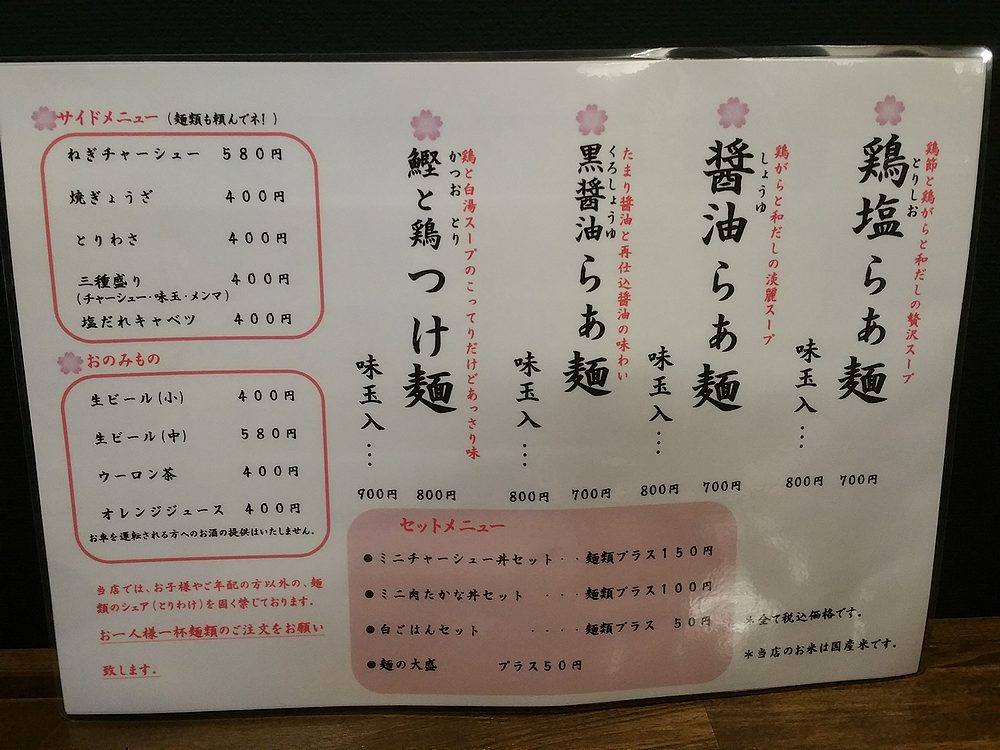 鶏節と鶏がらと和だしの贅沢スープ
とりしお
鶏塩らぁ麺
700円
味玉入…
800円
鶏がらと和だしの淡麗スープ
しょうゆ
醤油らぁ麺
700円
味玉入…
800円
たまり醤油と再仕込醤油の味わい
くろしょうゆ
黒醤油らぁ麺
700円
味玉入…
800円
鶏と白湯スープのこってりだけどあっさり味
かつお とり
鰹と鶏つけ麺
800円
味玉入…
900円
サイドメニュー (麵類も頼んでネ!)
ねぎチャーシュー 580円
焼ぎょうざ 400円
とりわさ 400円
三種盛り 400円
(チャーシュー・味玉・メンマ)
塩だれキャベツ 400円
おのみもの
生ビール(小) 400円
生ビール(中) 580円
ウーロン茶 400円
オレンジジュース 400円
お車を運転される方へのお酒の提供はいたしません。
当店では、お子様やご年配の方以外の、麺
類のシェア(とりわけ)を固く禁じております。
お一人様一杯麺類のご注文をお願い
致します。
セットメニュー
●ミニチャーシュー丼セット‥麺類プラス150円
●ミニ肉たかな丼セット ‥麺類プラス100円
●白ごはんセット ‥‥麺類プラス 50円
●麺の大盛 プラス50円
＊全て税込価格です。
＊当店のお米は国産米です。